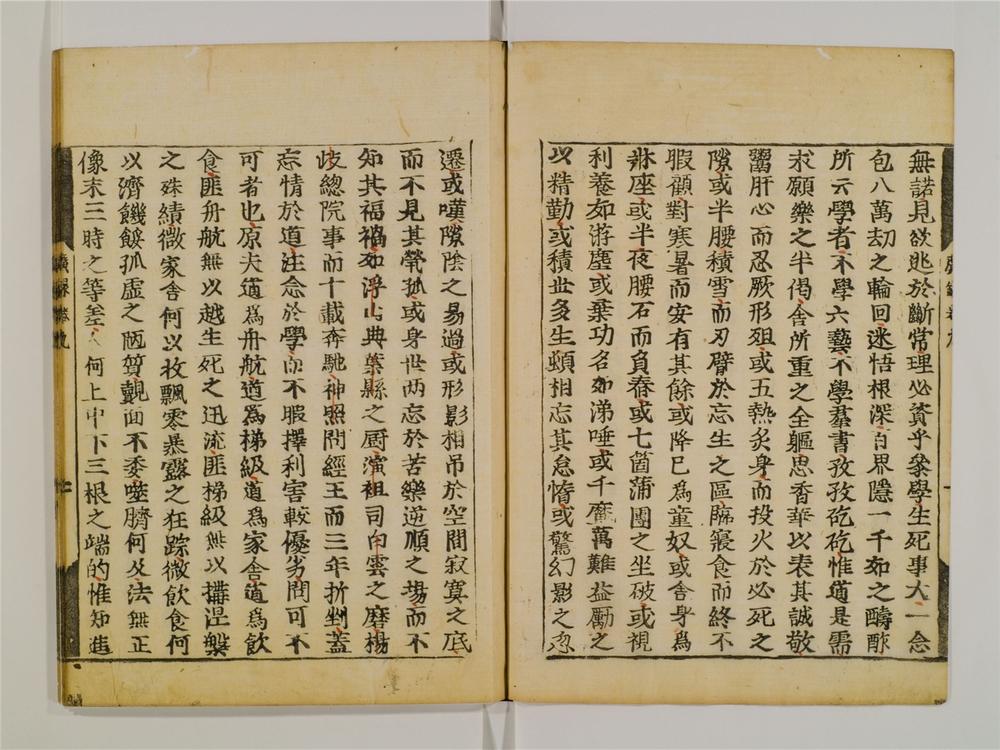 無諾見欲逃於斷常理必資乎參學生死事大一念
包八萬劫之輪回迷悟根深百界隱一千如之疇酢
所云學者不學六藝不學羣書孜孜矻矻惟道是需
求願樂之半偈舍所重之全軀思香華以表其誠敬
鬻肝心而忍厥形殂或五熱炙身而投火於必死之
隙或半腰積雪而刃臂於忘生之區廢寢食而終不
暇顧對寒暑而安有其餘或降己為童奴或舍身為
牀座或半夜腰石而負舂或七箇蒲團之坐破或視
利養如游塵或棄功名如涕唾或千魔萬難益勵之
以精勤或積世多生頓相忘其怠惰或驚幻影之忽
遷或嘆隙陰之易過或形影相吊於空閒寂寞之底
而不見其煢孤或身世兩忘於苦樂逆順之場而不
知其福禍如浮山典葉縣之厨演祖司白雲之磨楊
岐總院事而十載奔馳神照問經王而三年折剉蓋
忘情於道注念於學而不暇擇利害較優劣問可不
可者也原夫道為舟航道為梯級道為家舍道為飲
食匪舟航無以越生死之迅流匪梯級無以攀涅槃
之殊績微家舍何以攸飄零暴露之狂踪微飲食何
以濟饑餒孤虛之陋質覿面不委噬臍何及法無正
像末三時之等差人何上中下三根之端的惟知進